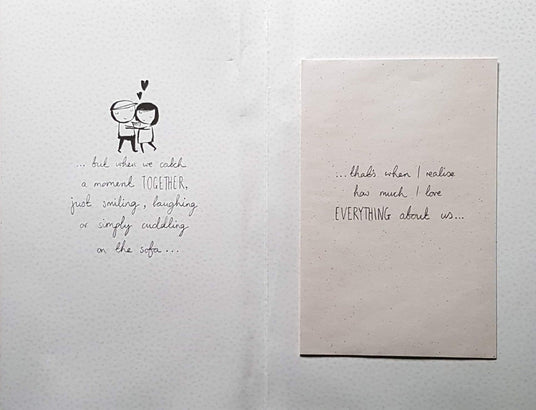 ... but when we catch
a moment TOGETHER,
just smiling, laughing
or simply cuddling
on the sofa...
...that's when I realise
how much I love
EVERYTHING about us...